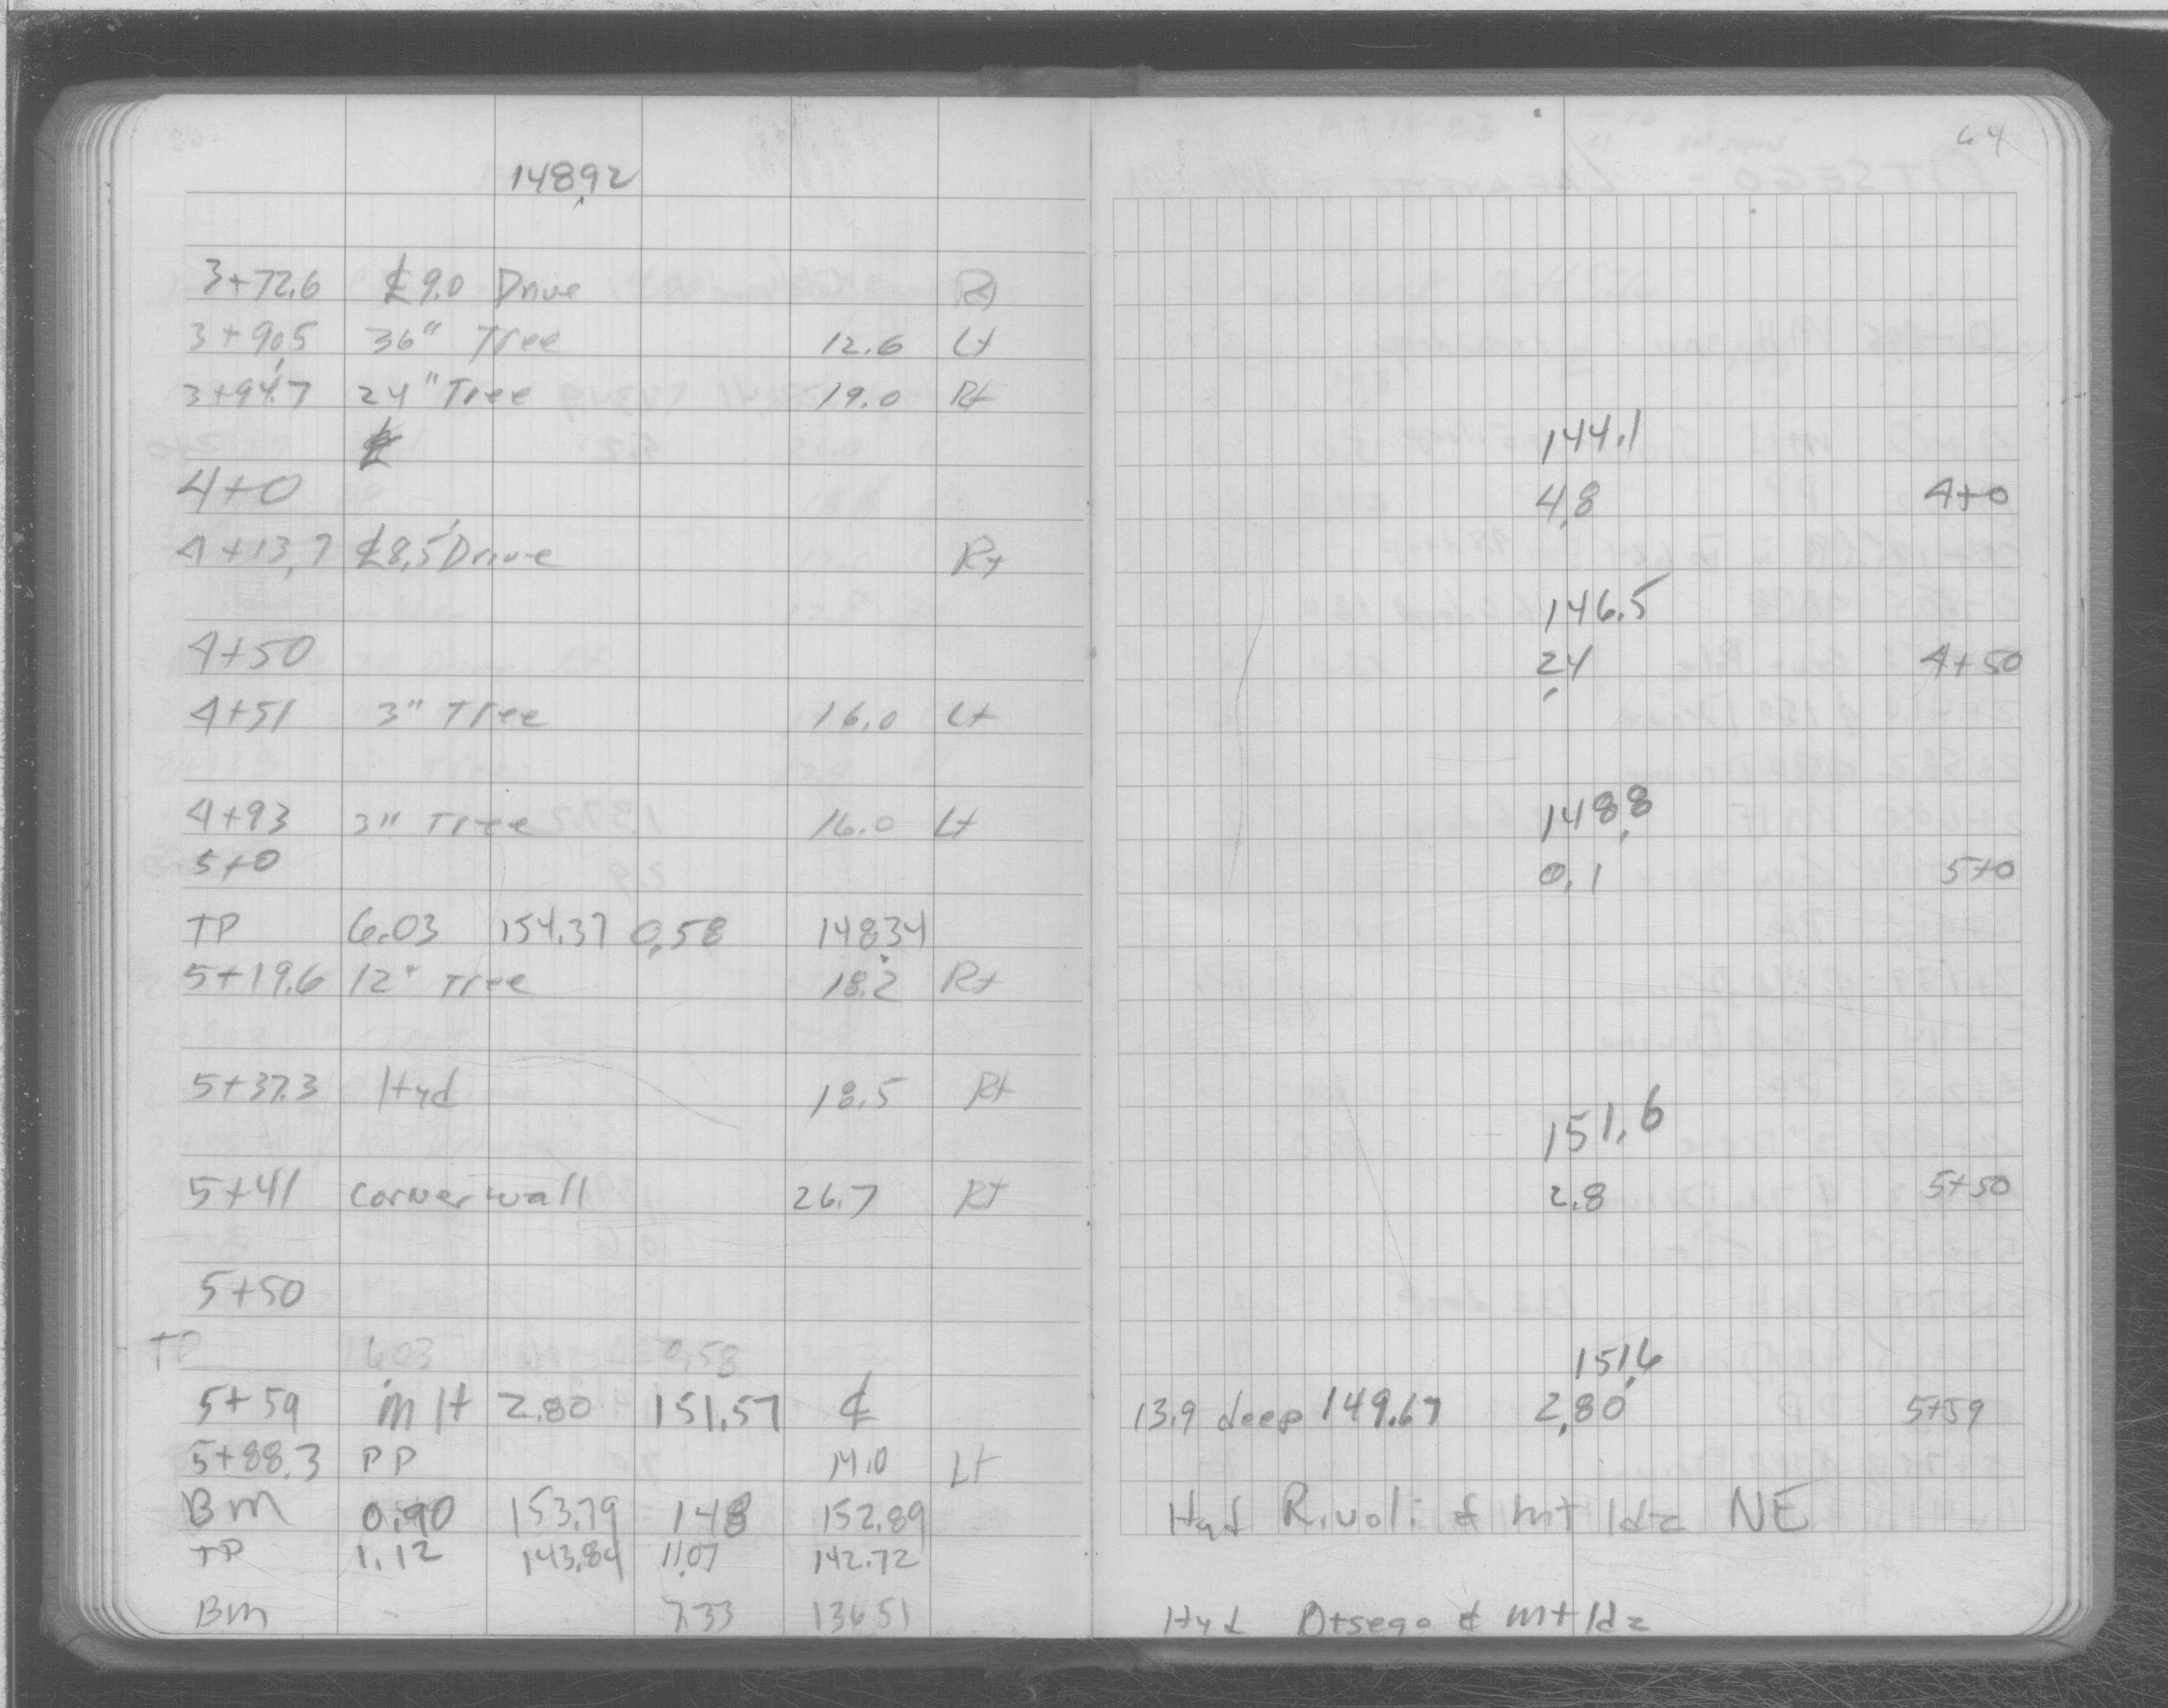 148.92
3+72.6 ⅊ 9.0 Drive Rt
3+90.5 36" Tree 12.6 Lt
3+94.7 24" Tree 19.0 Rt
4+0
4+13.7 ⅊ 8.5' Drive Rt
4+50
4+51 3" Tree 16.0 Lt
4+93 3" Tree 16.0 Lt
5+0
TP 6.03 154.37 0.58 148.34
5+19.6 12" Tree 18.2 Rt
5+37.3 Hyd 18.5 Rt
5+41 Corner wall 26.7 Rt
5+50
TP 6.03 0.58
5+59 MH 2.80 151.57 ⅊
5+88.3 PP 14.0 Lt
BM 0.90 153.79 1.48 152.89
TP 1.12 143.84 11.07 142.72
BM 7.33 136.51
64
144.1
4.8 4+0
146.5
2.4 4+50
148.8
0.1 5+0
151.6
2.8 5+50
151.6
13.9 deep 149.67 2.80 5+59
Hyd Rivoli & Mt Ida NE
Hyd Otsego & Mt Ida